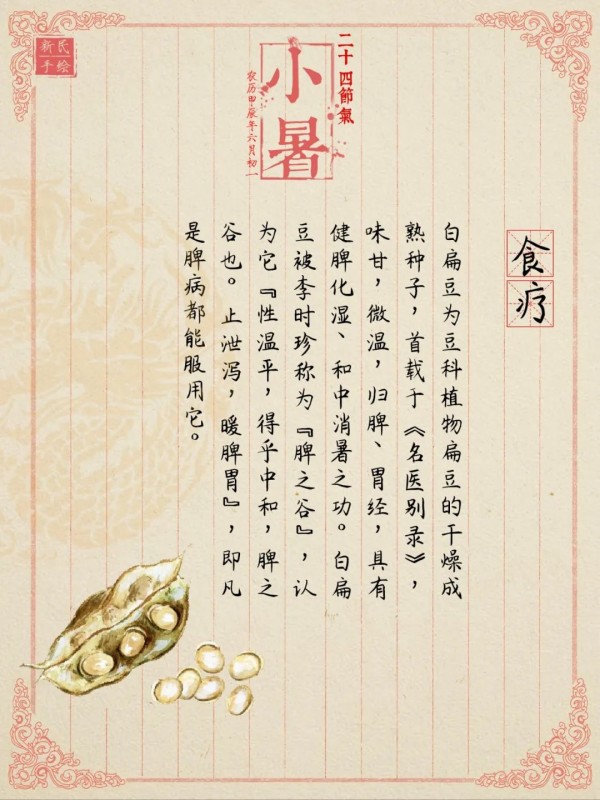 新氏
手绘
二十四節氣
小暑
农历甲辰年六月初一
食疗
白扁豆为豆科植物扁豆的干燥成
熟种子，首载于《名医别录》，
味甘，微温，归脾、胃经，具有
健脾化湿、和中消暑之功。白扁
豆被李时珍称为『脾之谷』，认
为它『性温平，得乎中和，脾之
谷也。止泄泻，暖脾胃』，即凡
是脾病都能服用它。